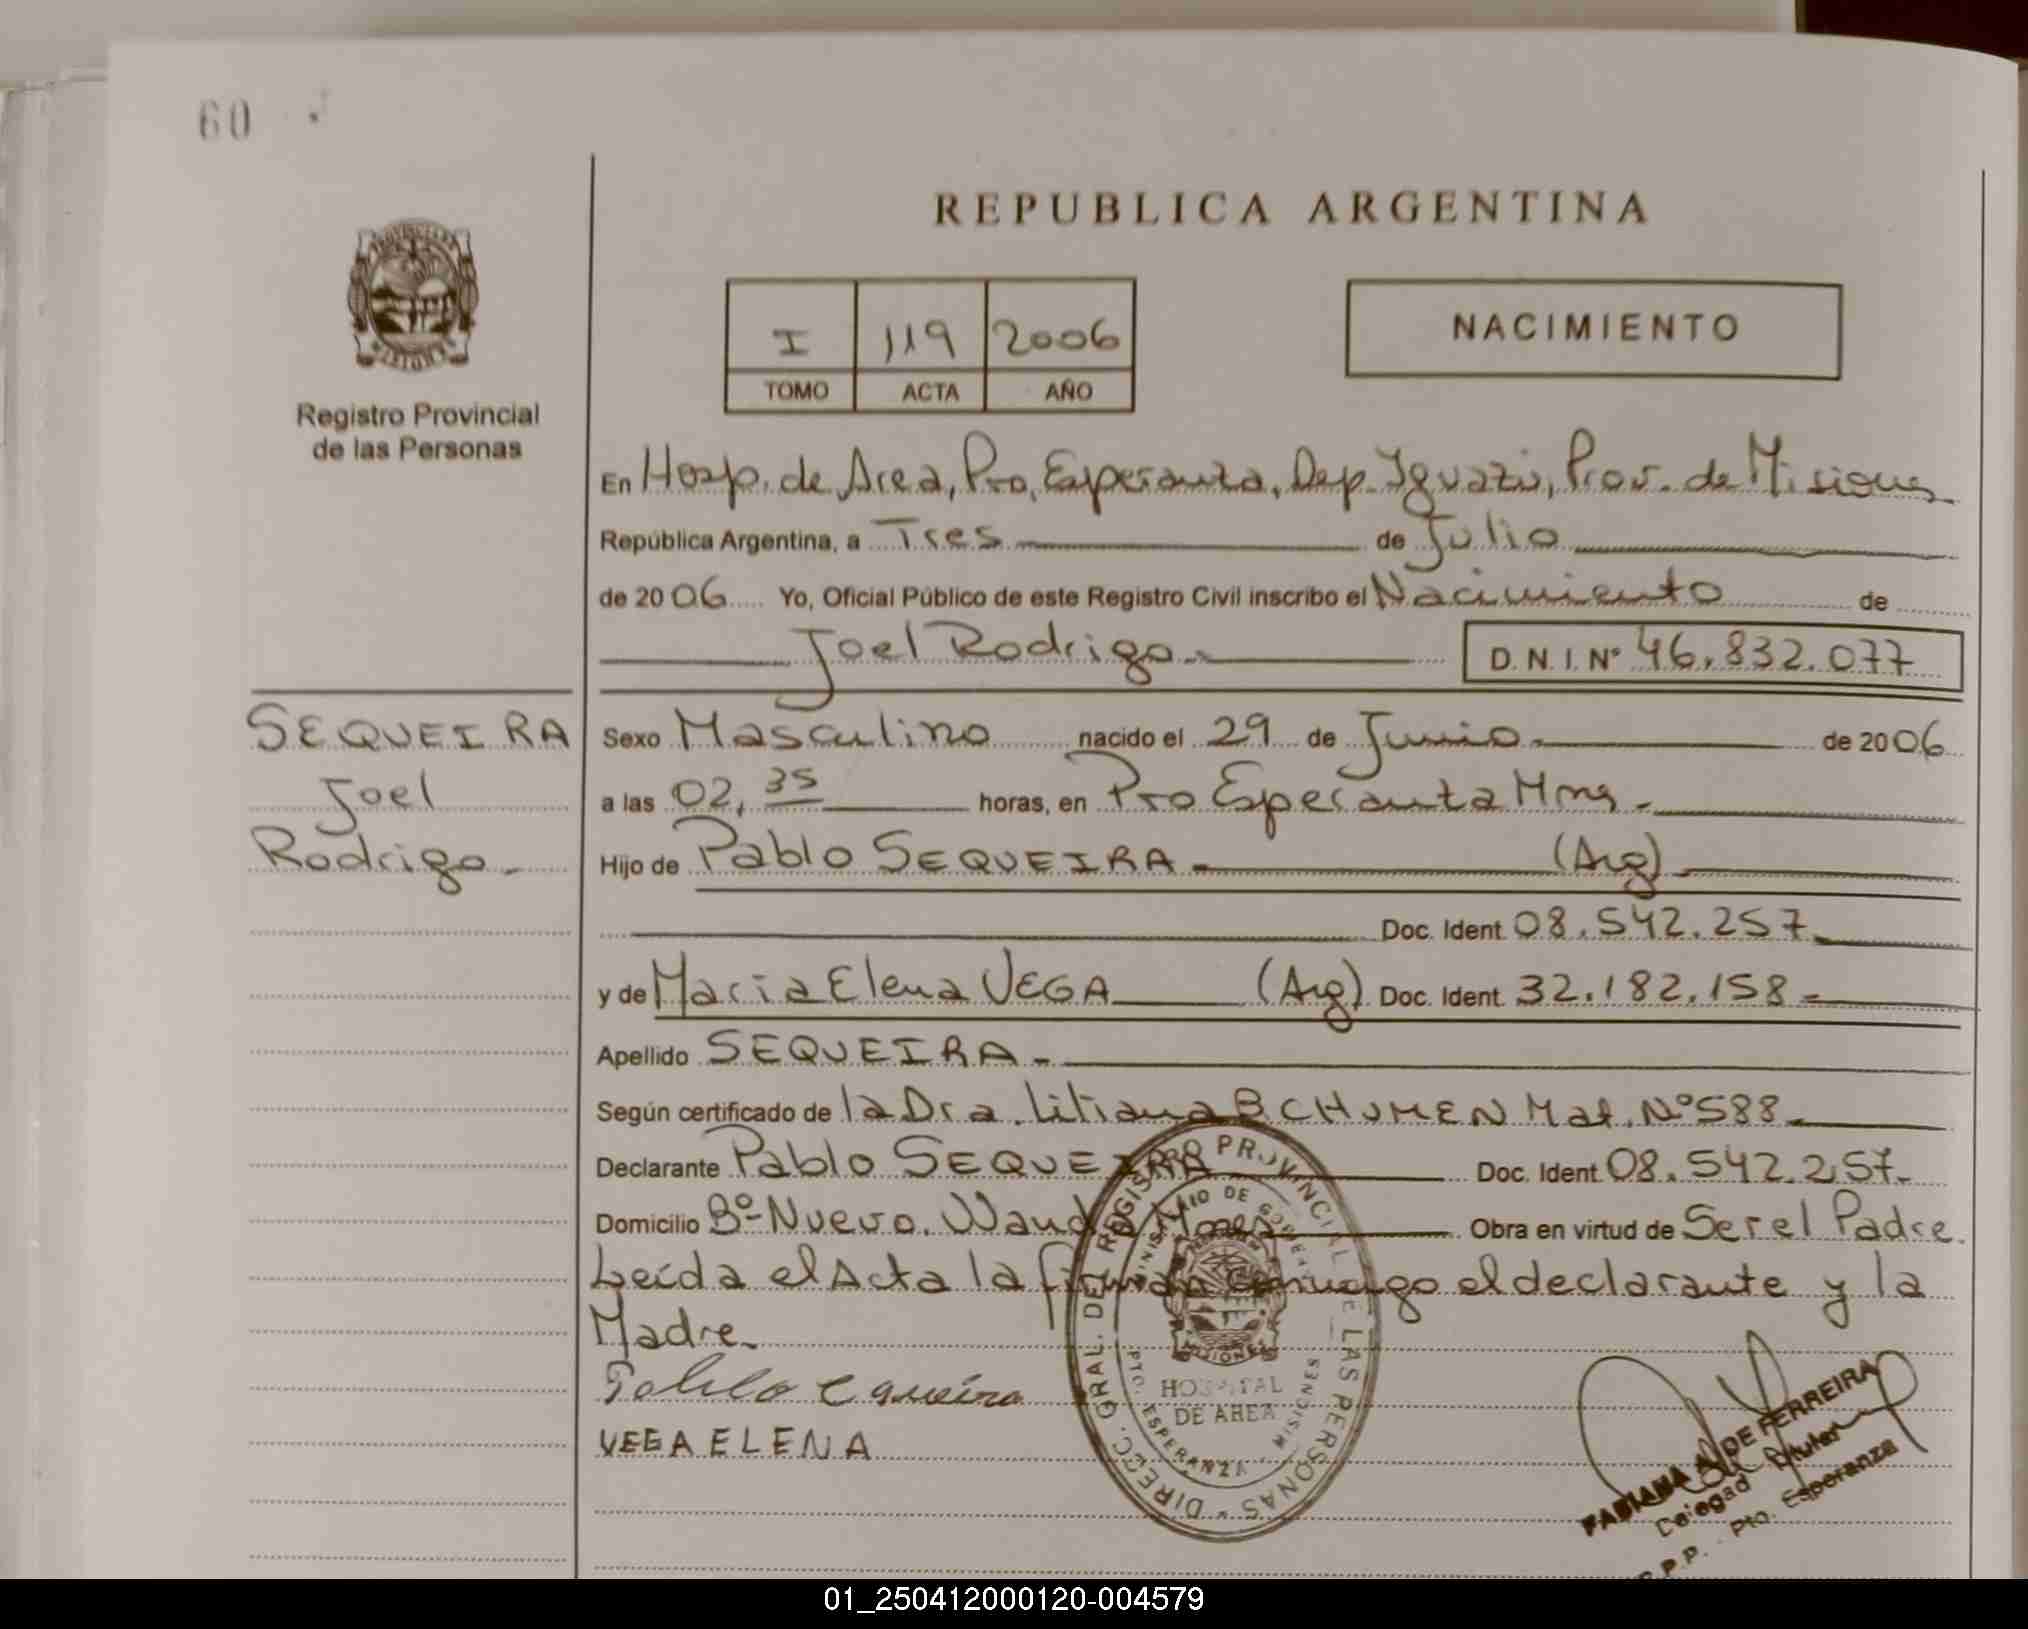 60
REPUBLICA ARGENTINA
I 119 2006
TOMO ACTA AÑO
NACIMIENTO
Registro Provincial
de las Personas
En Hosp. de Area, Pto, Esperanza, Dep. Iguazú, Prov. de Misiones
República Argentina, a Tres de Julio
de 2006 Yo, Oficial Público de este Registro Civil inscribo el Nacimiento de
Joel Rodrigo D.N.I. N° 46.832.077
SEQUEIRA
Joel
Rodrigo
Sexo Masculino nacido el 29 de Junio de 2006
a las 02,35 horas, en Pto Esperanza Mnes
Hijo de Pablo SEQUEIRA (Arg)
Doc. Ident. 08.542.257
y de Maria Elena VEGA (Arg) Doc. Ident. 32.182.158
Apellido SEQUEIRA
Según certificado de la Dra. Liliana B. CHUMEN Mat. N° 588
Declarante Pablo SEQUEIRA Doc. Ident. 08.542.257
Domicilio Bº Nuevo. Wanda Mnes Obra en virtud de Ser el Padre.
Leída el Acta la firman conmigo el declarante y la
Madre.
VEGA ELENA
DIREC. GRAL. DEL REGISTRO PROVINCIAL DE LAS PERSONAS
MINISTERIO DE GOBIERNO
MISIONES
HOSPITAL
DE AREA
PTO. ESPERANZA - MISIONES
FABIANA A. DE FERREIRA
Delegada Titular
R.P.P. - Pto. Esperanza
01_250412000120-004579